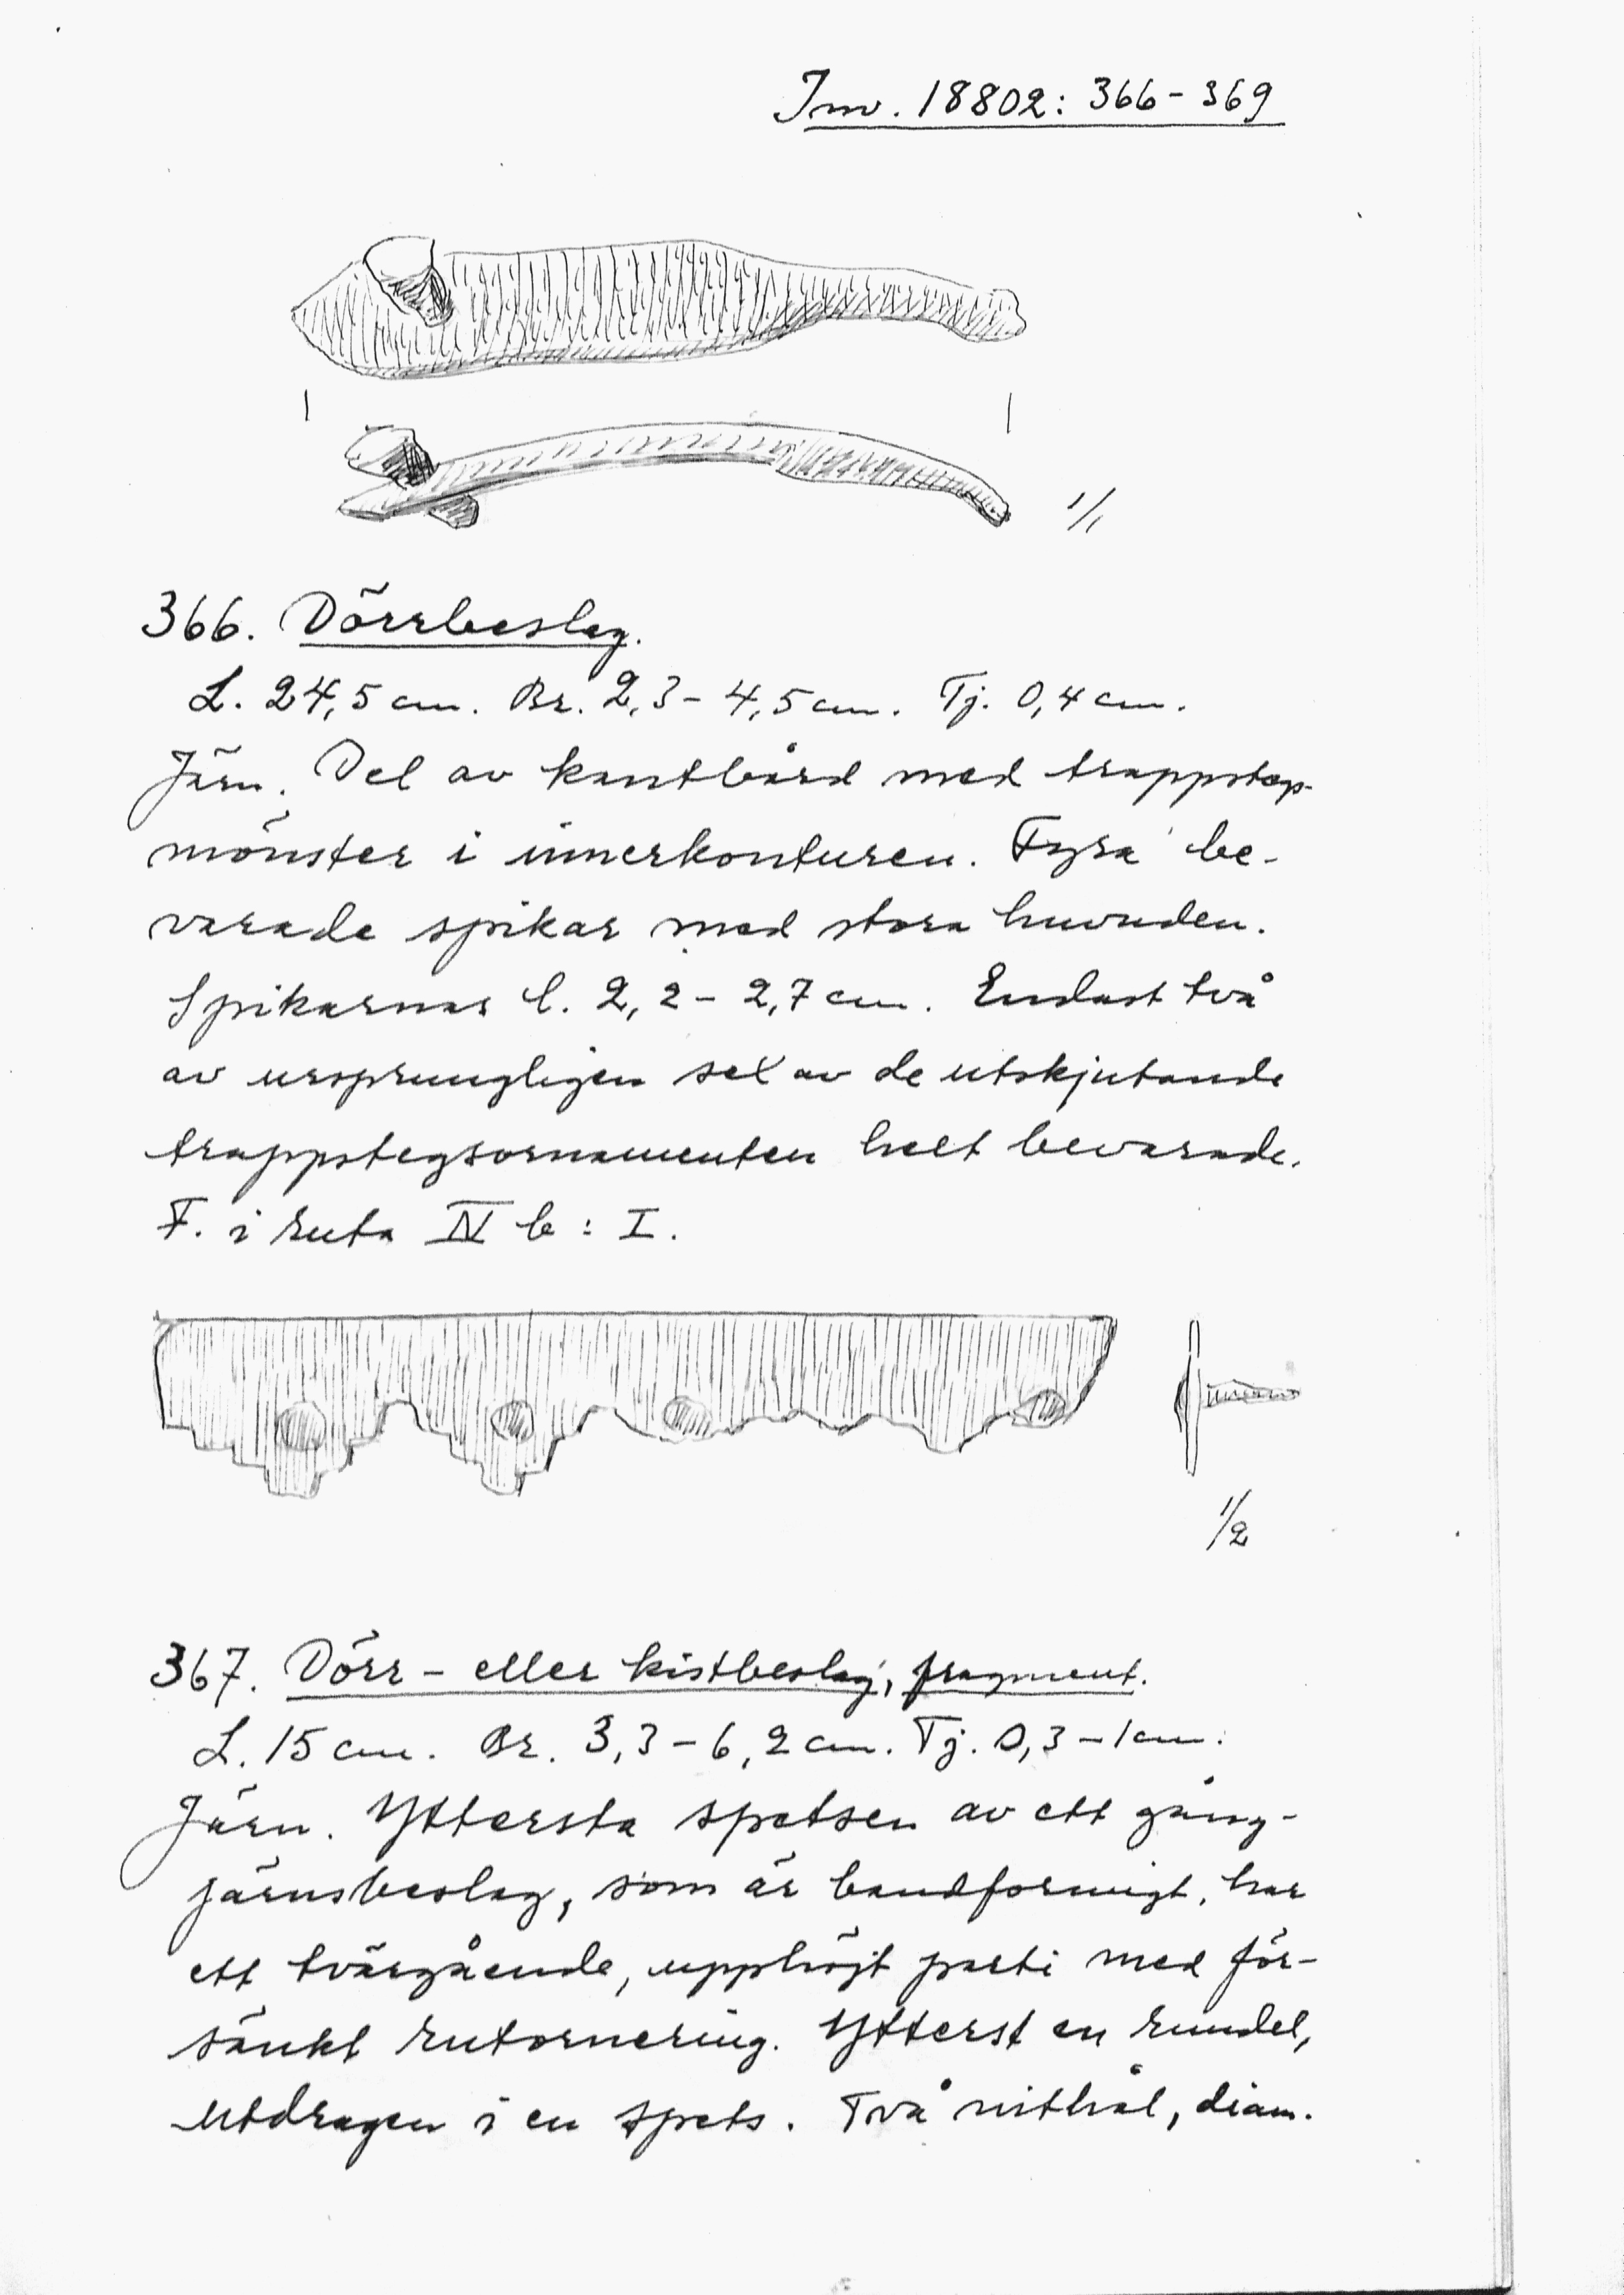 Inv. 18802: 366-369
1/1
366. Dörrbeslag.
L. 24,5 cm. Br. 2,3 - 4,5 cm. Tj. 0,4 cm.
Järn. Del av kantbård med trappsteg-
mönster i innerkonturen. Fyra be-
varade spikar med stora huvuden.
Spikarnas l. 2,2 - 2,7 cm. Endast två
av ursprungligen sex av de utskjutande
trappstegsornamenten helt bevarade.
F. i ruta IV b : I.
1/2
367. Dörr- eller kistbeslag, fragment.
L. 15 cm. Br. 3,3 - 6,2 cm. Tj. 0,3 - 1 cm.
Järn. Yttersta spetsen av ett gång-
järnsbeslag, som är bandformigt, har
ett tvärgående, upphöjt parti med för-
sänkt rutornering. Ytterst en rundel,
utdragen i en spets. Två nithål, diam.